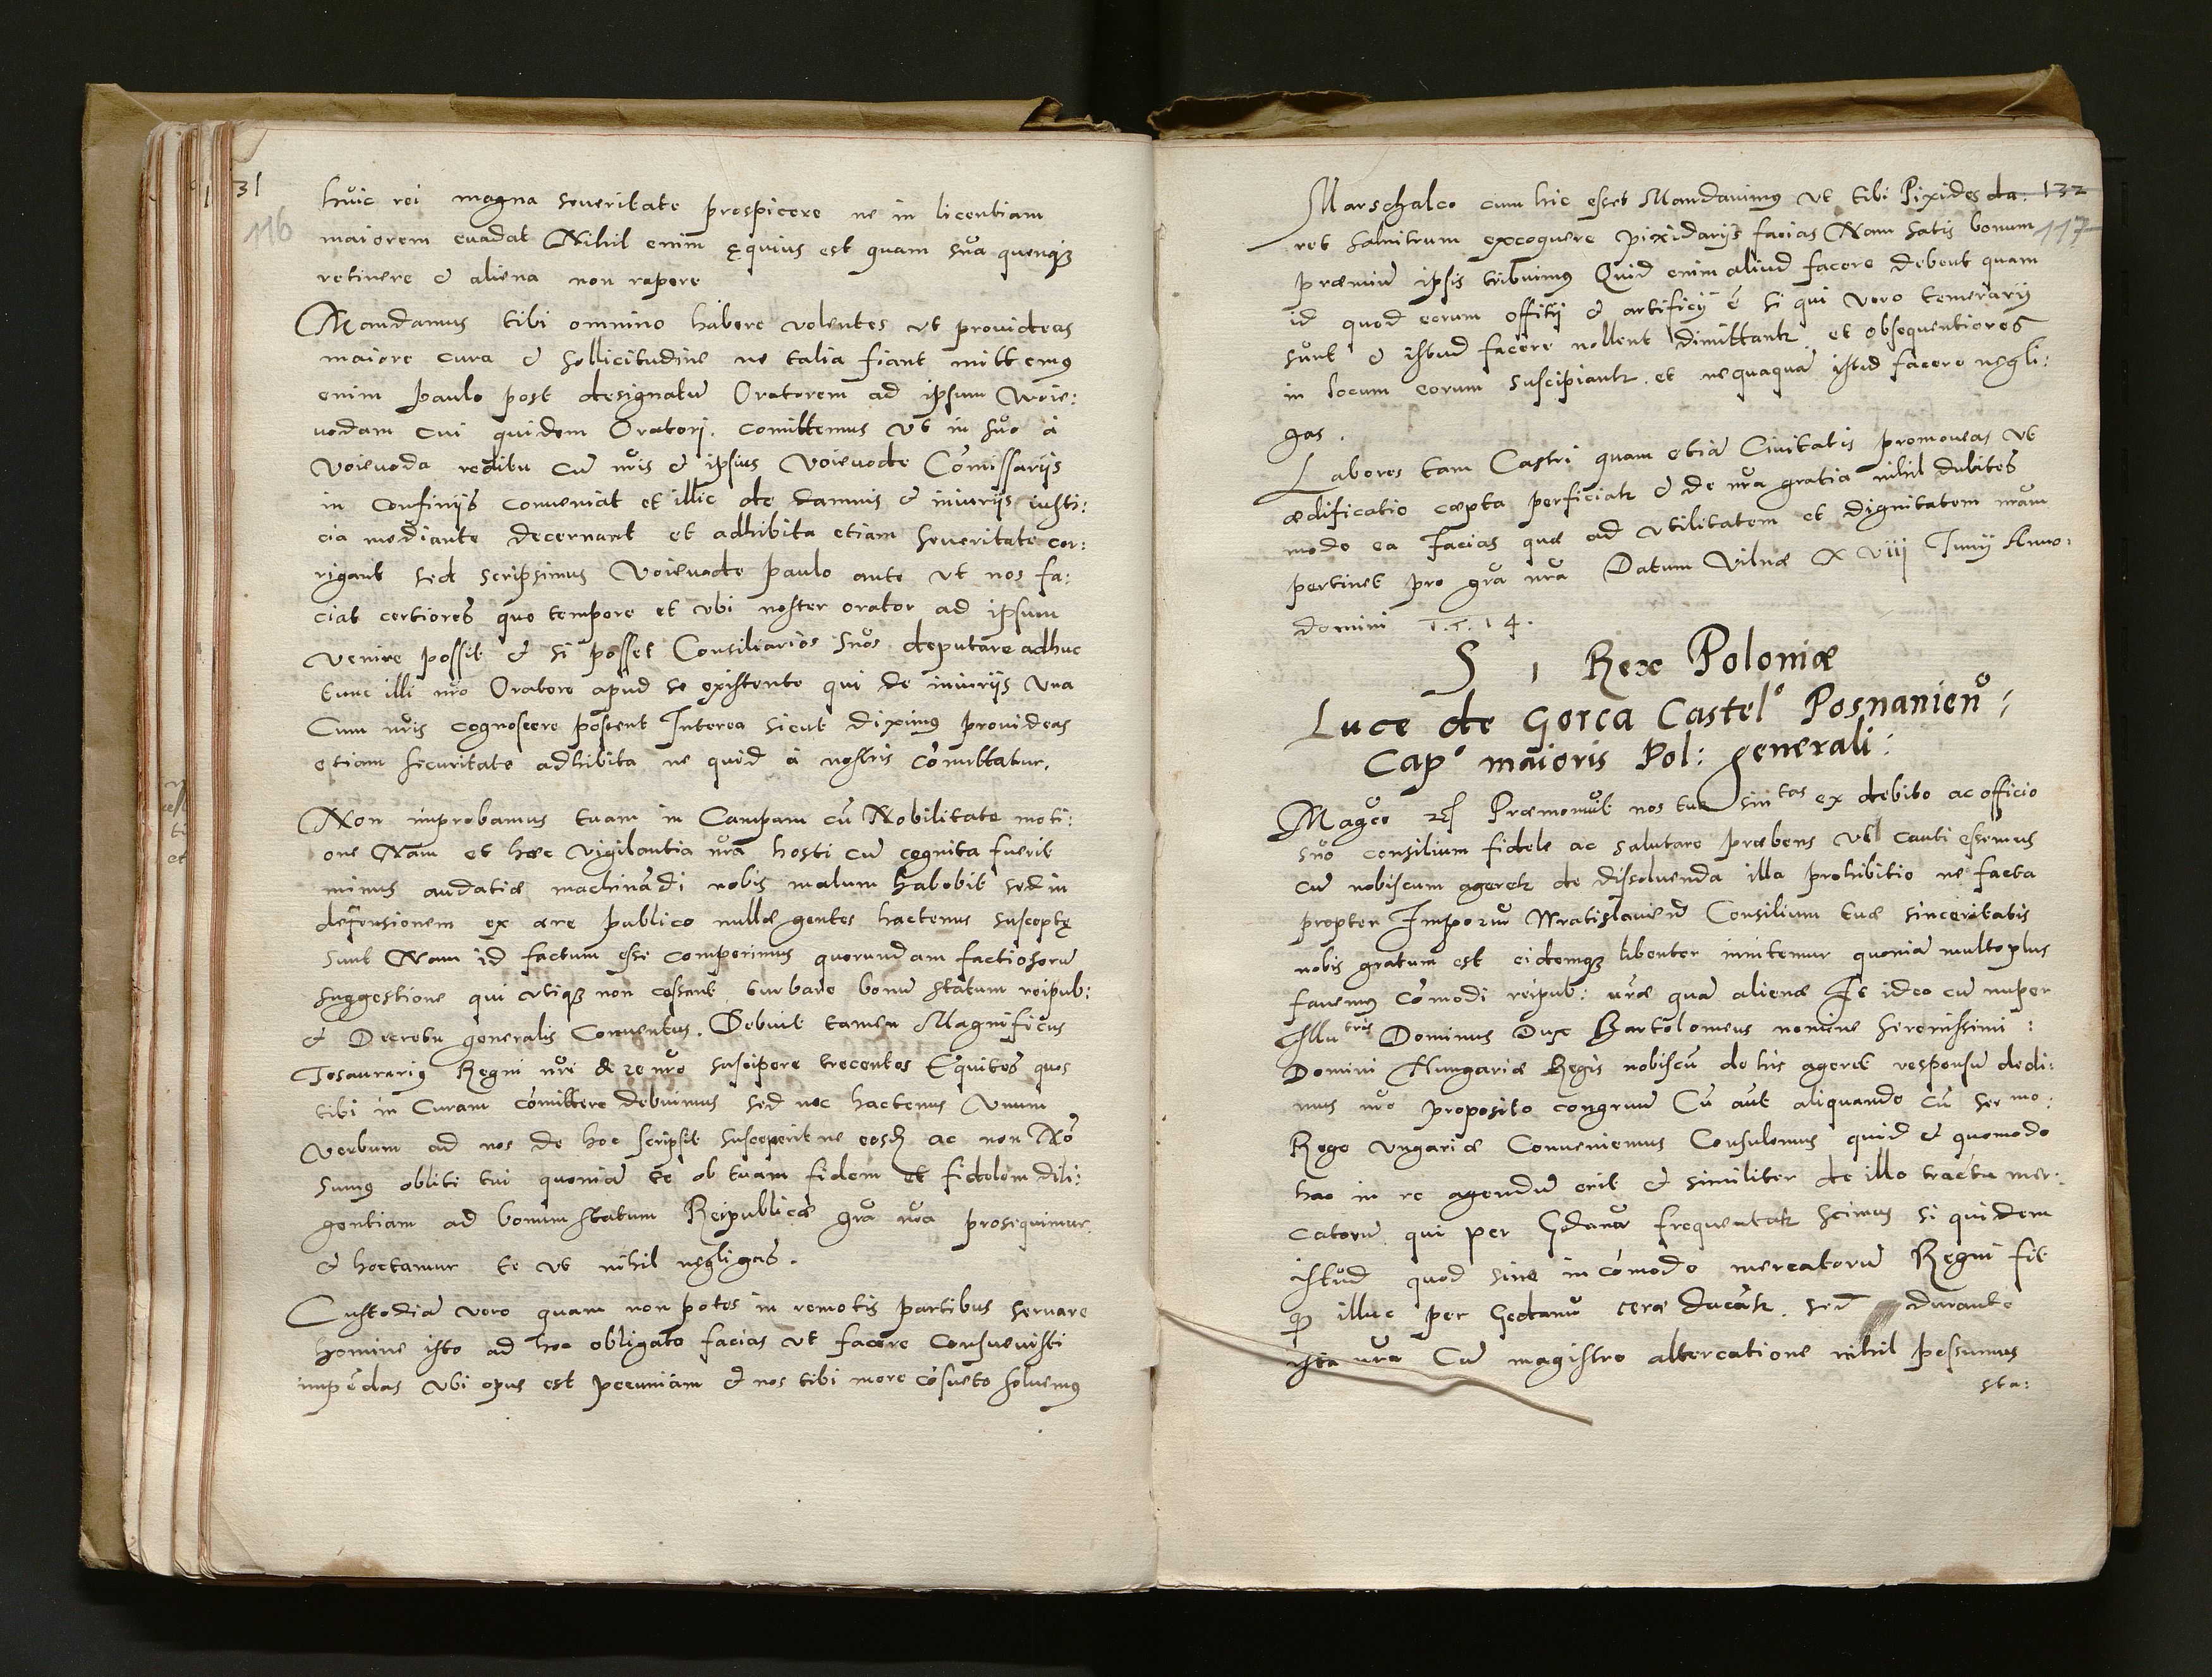 131
116
huic rei magna seueritate prospicere ne in licentiam
maiorem euadat Nihil enim ęquius est quam sua quenq3
retinere & aliena non rapere
Mandamus tibi omnino habere volentes vt prouideas
maiore cura & sollicitudine ne talia fiant mittemus
enim paulo post designatū Oratorem ad ipsum Woie:
uodam cui quidem Oratori. comittemus vt in suo à
Voieuoda reditu cū nr̄is & ipsius Voieuode Cōmissarijs
in confinijs conueniat et illic de damnis & iniurijs iusti:
cia mediante decernant et adhibita etiam seueritate cor:
rigant sed scripsimus Voieuode paulo ante vt nos fa:
ciat certiores quo tempore et vbi noster orator ad ipsum
venire possit & si posset Consiliarios suos deputare adhuc
tunc illi nr̄o Oratore apud se existente qui de iniurijs vna
Cum nr̄is cognoscere possent Interea sicut diximus prouideas
etiam securitate adhibita ne quid à nostris cōmittatur.
Non improbamus tuam in Campum cū Nobilitate moti:
one Nam et hæc vigilantia nr̄a hosti cū cognita fuerit
minus audatiæ machinādi nobis malum habebit sed in
defensionem ex ære publico nullæ gentes hactenus susceptę
sunt Nam id factum esse comperimus quorundam factiosorū
suggestione qui vtiq3 non cessant turbare bonū statum reipub:
& Decretu generalis Conuentus. Debuit tamen Magnificus
Tesaurarius Regni nr̄i de re nr̄o suscipere trecentos Equites quos
tibi in Curam cōmittere debuimus sed nec hactenus Vnum
verbum ad nos de hoc scripsit susceperit ne eosd ac non Nō
sumus obliti tui quoniā te ob tuam fidem et fidelem dili:
gentiam ad bonum statum Reipublicæ gr̄a nr̄a prosequimur
& hortamur te vt nihil negligas.
Custodiā vero quam non potes in remotis partibus seruare
homine isto ad hoc obligato facias vt facere Consueuisti
impēdas vbi opus est pecuniam & nos tibi more cōsueto soluemus
132
117
Marschalco cum hic esset Mandauimus vt tibi Pixides da:
ret salnitrum excoquere pixidarijs facias Nam satis bonum
præmiū ipsis tribuimus Quid enim aliud facere debent quam
id quod eorum offitij & artificij ē si qui vero temerarij
sunt & istud facere nollent dimittantr et obsequentiores
in locum eorum suscipiantr. et nequaquā istud facere negli:
gas.
Labores tam Castri quam etiā Ciuitatis promoueas vt
ædificatio cæpta perficiatr & de nr̄a gratia nihil dubites
modo ea facias quæ ad vtilitatem et dignitatem nr̄am
pertinet pro gr̄a nr̄a Datum Vilnæ XVIII Junij Anno.
domini 1514.
S 1 Rex Poloniæ
Luce de Gorca Castel° Posnanien̄:
Cap° maioris Pol: generali:
Magco Præmonuit nos tua sintas ex debito ac officio
suo consilium fidele ac salutare præbens vt cauti essemus
cū nobiscum ageretr de dissoluenda illa prohibitio ne facta
propter Imporiū Wratislauien̄ Consilium tuæ sinceritatis
nobis gratum est eidemq3 libenter innitemur quoniā multo plus
fauemus cōmodi reipub: nr̄æ quā alienæ Et ideo cū nuper
Illutris Dominus Dux Bartolomeus nomine serenissimi:
Domini Hungariæ Regis nobiscū de his ageret responsū dedi:
mus nr̄o proposito congruū Cū aūt aliquando cū ser mo:
Rege Vngariæ Conueniemus Consulemus quid & quomodo
hac in re agendū erit & similiter de illo tractu mer:
catorū qui per Gdanū frequentatr scimus si quidem
istud quod sine incōmodo mercatorū Regni fit
q illuc per Gedanū ceræ ducātr. sed durante
ista nr̄a Cū magistro altercatione nihil possumus
sta: